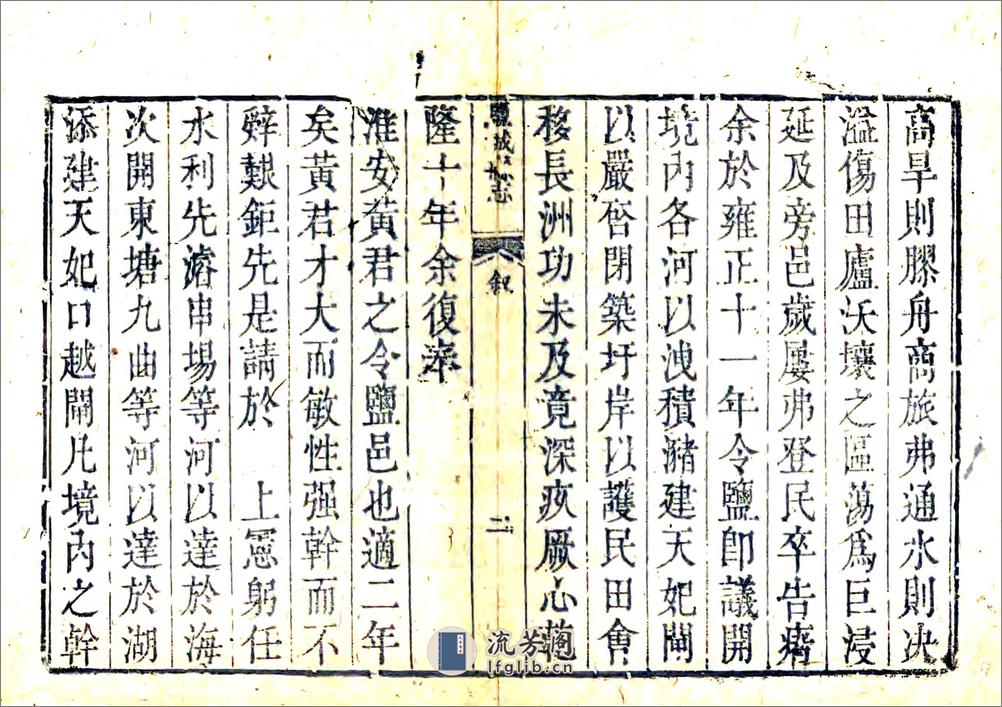 高旱則膠舟商旅弗通水則决
溢傷田廬沃壤之區蕩爲巨浸
延及旁邑歲屢弗登民卒告瘠
余於雍正十一年令鹽卽議開
境內各河以洩積潴建天妃閘
以嚴啓閉築圩岸以護民田會
移長洲功未及竟深疚厥心
鹽城志
叙
二
隆十年余復奉
淮安黃君之令鹽邑也適二年
矣黃君才大而敏性强幹而不
辭艱鉅先是請於 上憲躬任
水利先濬串場等河以達於海
次開東塘九曲等河以達於湖
添建天妃口越閘凡境內之幹
流芳阁
lfglib.cn